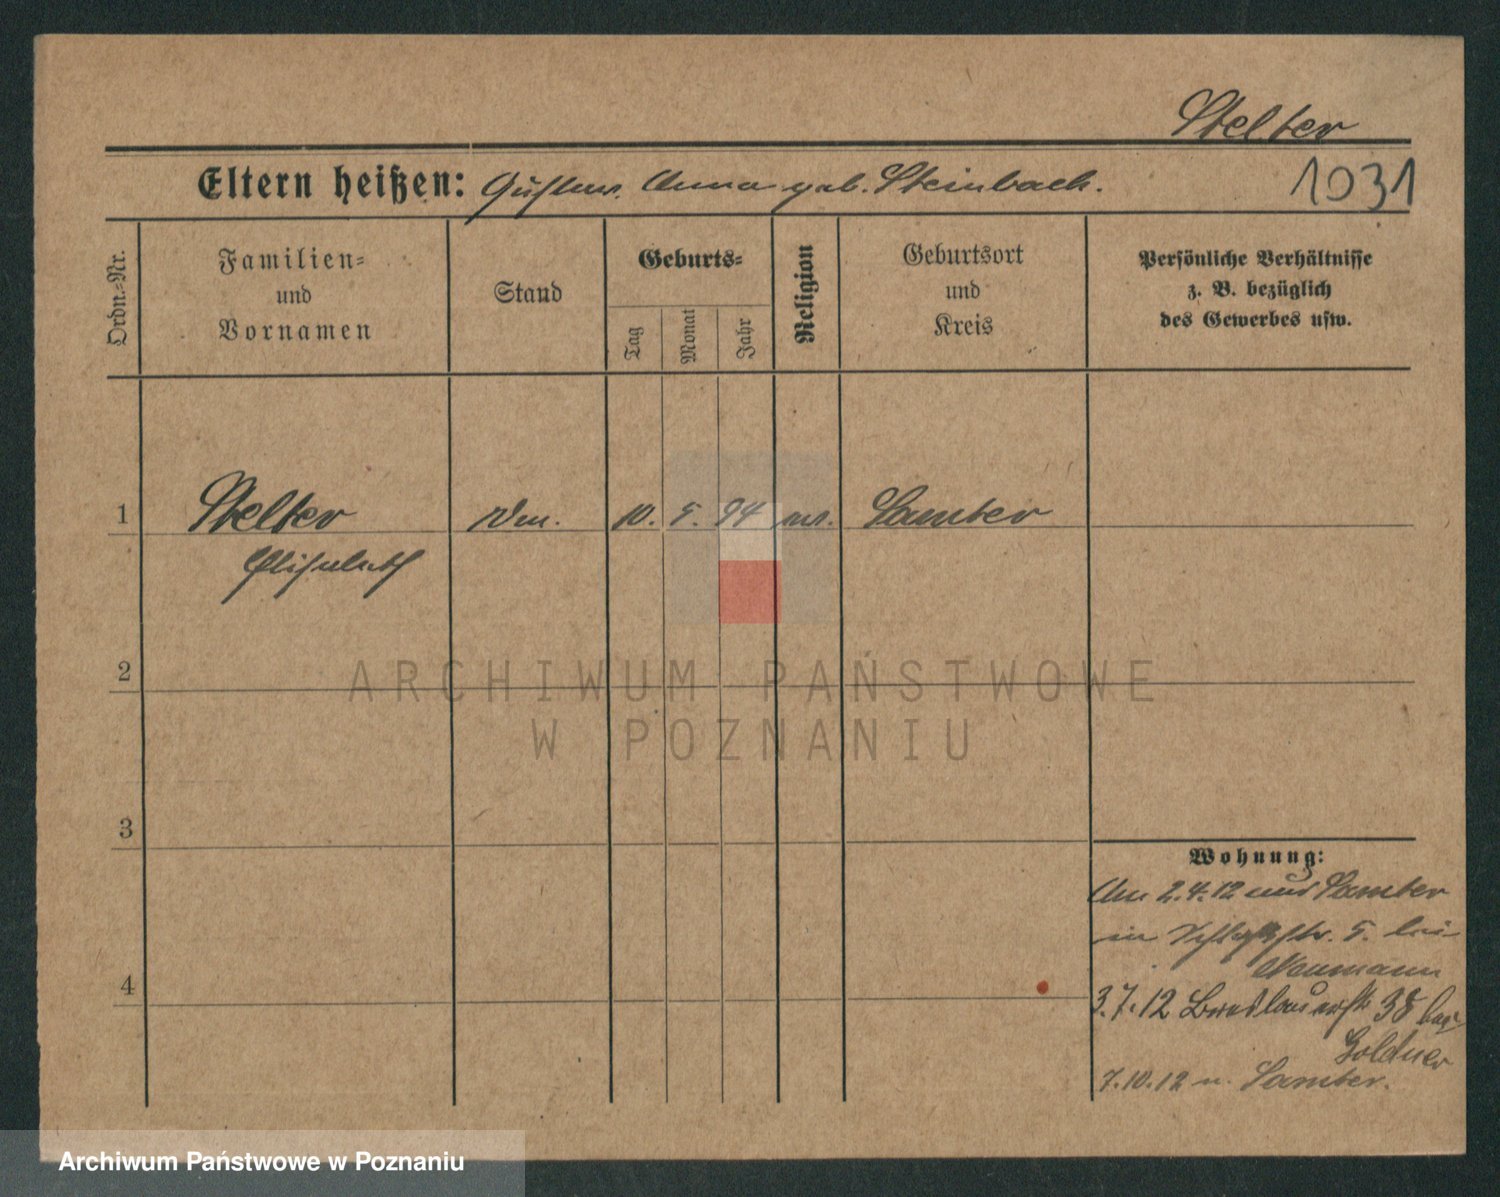 Stelter
Eltern heißen: Gustav. Anna geb. Steinbach.
1031
Ordn.-Nr.
Familien-
und
Vornamen
Stand
Geburts-
Tag
Monat
Jahr
Religion
Geburtsort
und
Kreis
Persönliche Verhältnisse
z. B. bezüglich
des Gewerbes usw.
1 Stelter 10. 5. 94 Samter
Elisabeth
2
ARCHIWUM PAŃSTWOWE
W POZNANIU
3
Wohnung:
Am 2.4.12 aus Samter
in 5. bei
Neumann
4
3.7.12 Breslauerstr 38 bei
Goldner
7.10.12 n. Samter.
Archiwum Państwowe w Poznaniu